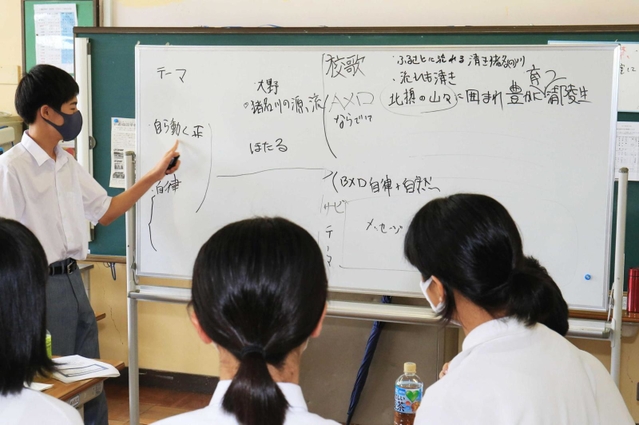 テーマ
・自ら動く
自律
大野
・猪名川の源流
ほたる
校歌
AXD
ならでは
・ふるさとに流れる清き猪名川
・流れも清き
北摂の山々に囲まれ豊かに育つ
BXD 自律+自然
サビ
テーマ
メッセージ